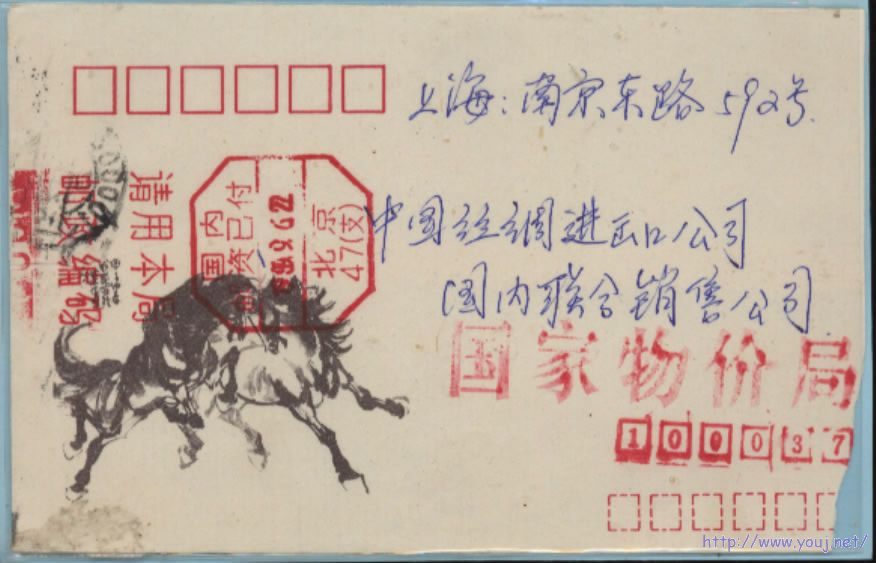 上海：南京东路592号.
中国丝绸进出口公司
国内联合销售公司
国家物价局
100037
国内
邮资已付
北京
47(支)
请用本局
邮政编码
http://www.youj.net/